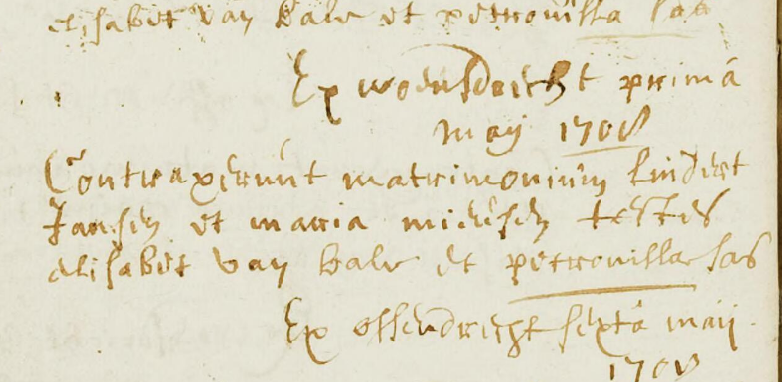 elisabet van bale et petronilla sas
Ex woensdrecht prima
maij 1708
Contraxerunt matrimonium lindert
Jansen et maria micusen testes
elisabet van bale et petronilla sas
Ex ossendrecht sexta maij
1708